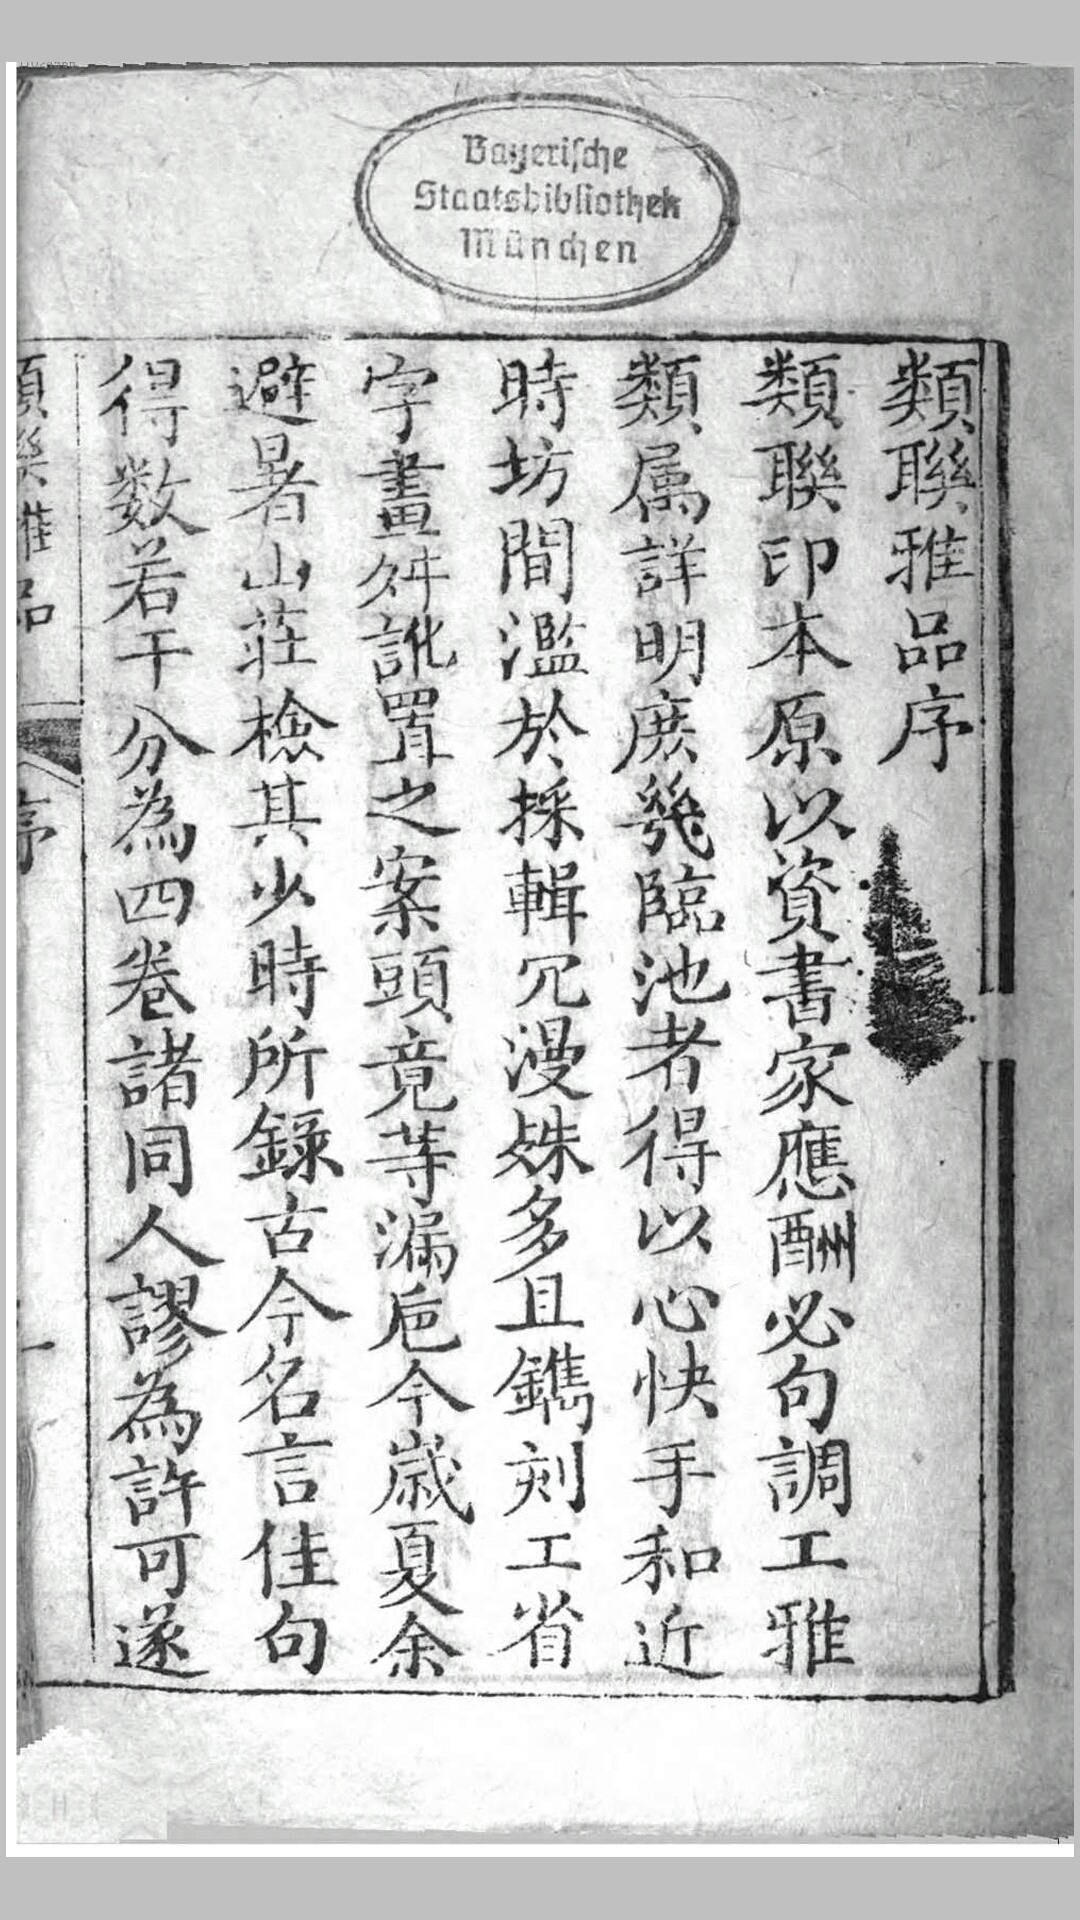 Bayerische
Staatsbibliothek
München
類聯雅品序
類聯印本原以資書家應酬必句調工雅
類属詳明庶幾臨池者得以心快手和近
時坊間濫於採輯冗漫姝多且鐫刻工省
字畫舛訛置之案頭竟等漏巵今歲夏余
避暑山荘檢其少時所錄古今名言佳句
得数若干分為四卷諸同人謬為許可遂
序
一